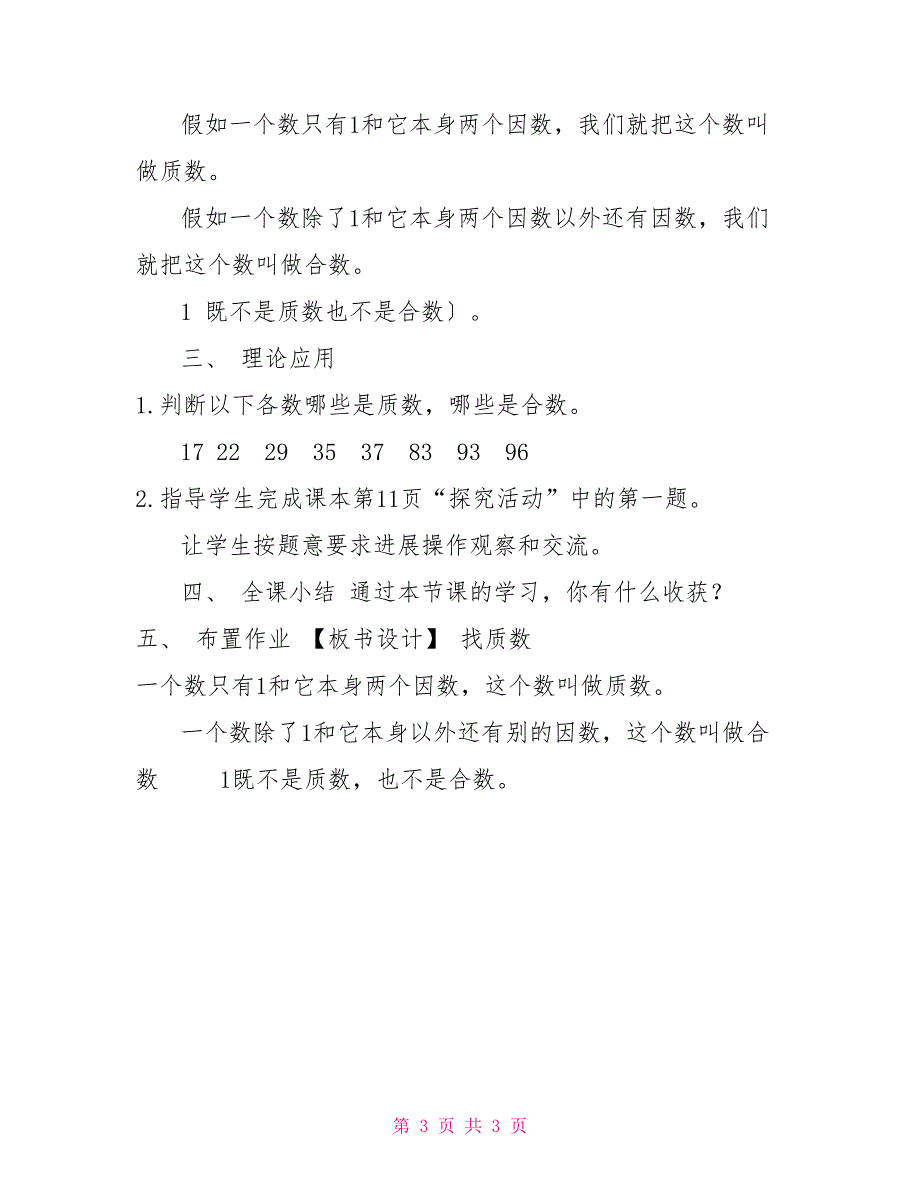 假如一个数只有1和它本身两个因数，我们就把这个数叫
做质数。
假如一个数除了1和它本身两个因数以外还有因数，我们
就把这个数叫做合数。
1 既不是质数也不是合数〕。
三、 理论应用
1.判断以下各数哪些是质数，哪些是合数。
17 22  29  35  37  83  93  96
2.指导学生完成课本第11页“探究活动”中的第一题。
让学生按题意要求进展操作观察和交流。
四、 全课小结 通过本节课的学习，你有什么收获？
五、 布置作业 【板书设计】 找质数
一个数只有1和它本身两个因数，这个数叫做质数。
一个数除了1和它本身以外还有别的因数，这个数叫做合
数     1既不是质数，也不是合数。
第 3 页 共 3 页